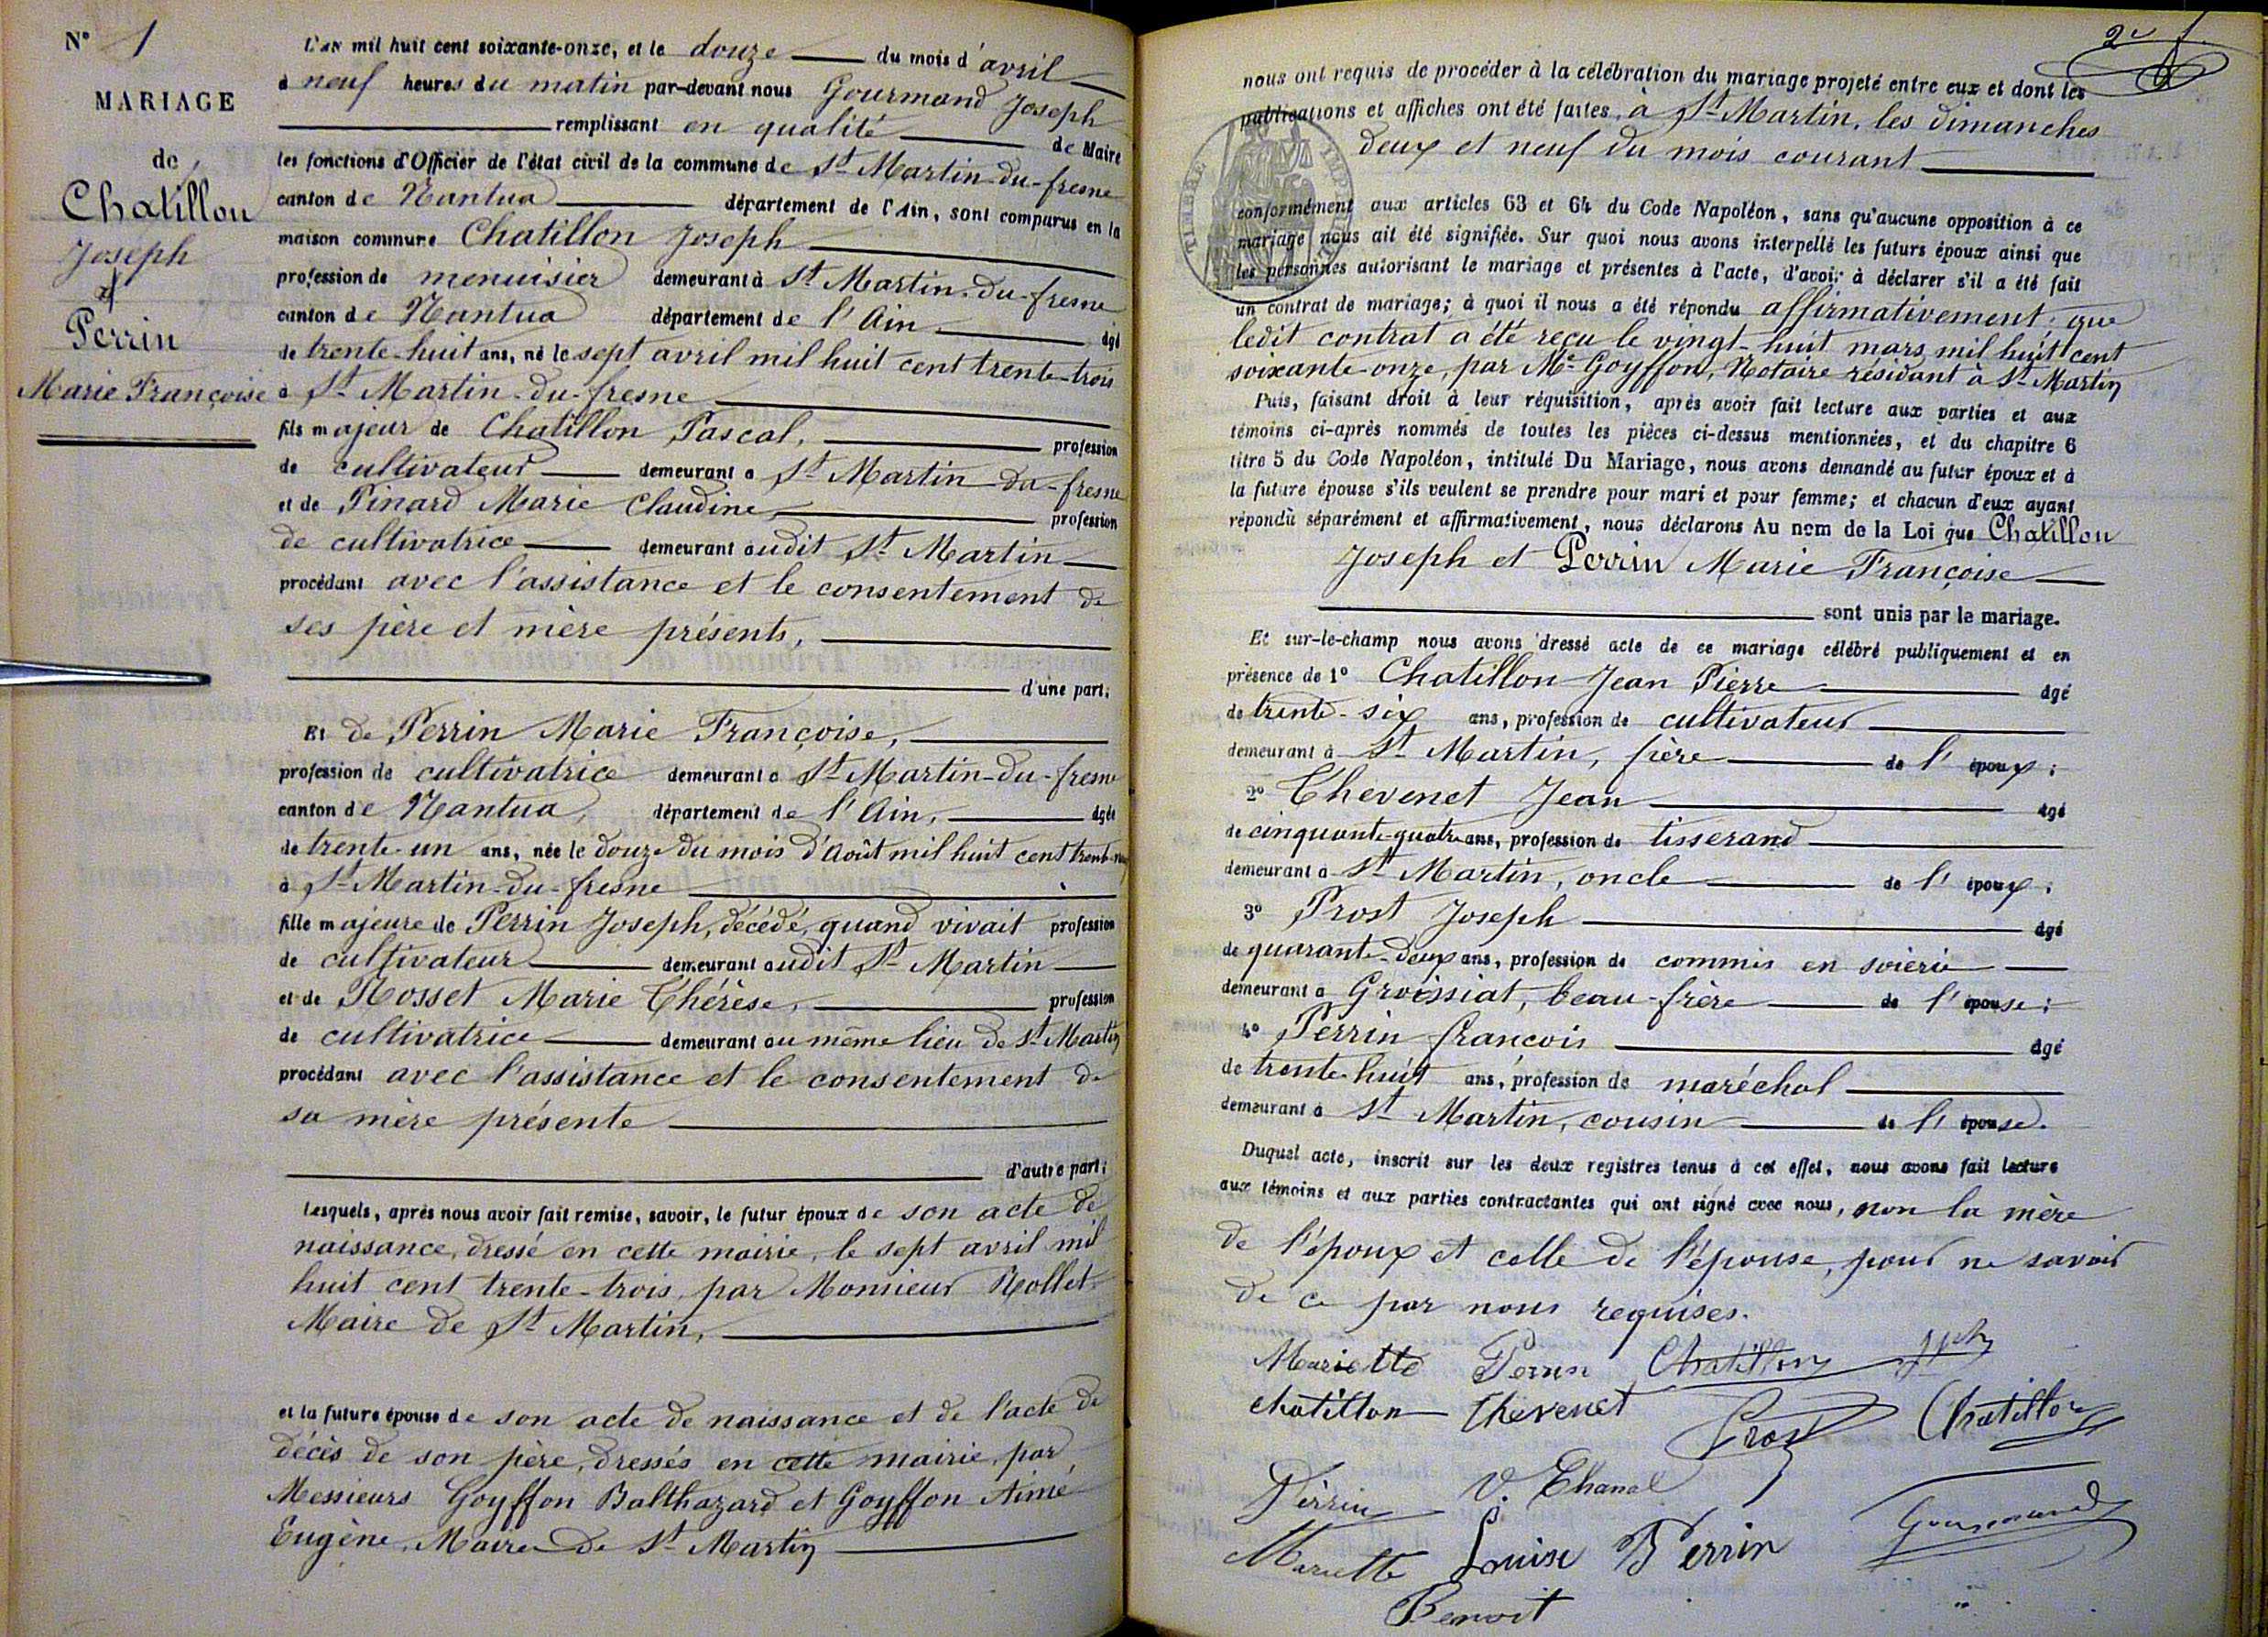 N° 1
MARIAGE
de
Chatillon
Joseph
et
Perrin
Marie Françoise
L'an mil huit cent soixante-onze, et le douze du mois d'avril
à neuf heures du matin par-devant nous Gourmand Joseph
remplissant en qualité de Maire
les fonctions d'Officier de l'état civil de la commune de St Martin-du-fresne
canton de Nantua département de l'Ain, sont comparus en la
maison commune Chatillon Joseph
profession de menuisier demeurant à St Martin-du-fresne
canton de Nantua département de l'Ain âgé
de trente-huit ans, né le sept avril mil huit cent trente-trois
à St Martin-du-fresne
fils majeur de Chatillon Pascal, profession
de cultivateur demeurant à St Martin-du-fresne
et de Pinard Marie Claudine profession
de cultivatrice demeurant audit St Martin
procédant avec l'assistance et le consentement de
ses père et mère présents,
d'une part;
Et de Perrin Marie Françoise,
profession de cultivatrice demeurant à St Martin-du-fresne
canton de Nantua, département de l'Ain, âgée
de trente-un ans, née le douze du mois d'Août mil huit cent trente-neuf
à St Martin-du-fresne
fille majeure de Perrin Joseph, décédé, quand vivait profession
de cultivateur demeurant audit St Martin
et de Rosset Marie Thérèse, profession
de cultivatrice demeurant au même lieu de St Martin
procédant avec l'assistance et le consentement de
sa mère présente
d'autre part;
Lesquels, après nous avoir fait remise, savoir, le futur époux de son acte de
naissance, dressé en cette mairie, le sept avril mil
huit cent trente-trois, par Monsieur Rollet
Maire de St Martin,
et la future épouse de son acte de naissance et de l'acte de
décès de son père, dressés en cette mairie, par
Messieurs Goyffon Balthazard et Goyffon Aimé
Eugène, Maires de St Martin
2e f.
nous ont requis de procéder à la célébration du mariage projeté entre eux et dont les
publications et affiches ont été faites, à St Martin, les dimanches
deux et neuf du mois courant
TIMBRE IMP
conformément aux articles 63 et 64 du Code Napoléon, sans qu'aucune opposition à ce
mariage nous ait été signifiée. Sur quoi nous avons interpellé les futurs époux ainsi que
les personnes autorisant le mariage et présentes à l'acte, d'avoir à déclarer s'il a été fait
un contrat de mariage; à quoi il nous a été répondu affirmativement, que
ledit contrat a été reçu le vingt-huit mars mil huit cent
soixante-onze, par Me Goyffon, Notaire résidant à St Martin
Puis, faisant droit à leur réquisition, après avoir fait lecture aux parties et aux
témoins ci-après nommés de toutes les pièces ci-dessus mentionnées, et du chapitre 6
titre 5 du Code Napoléon, intitulé Du Mariage, nous avons demandé au futur époux et à
la future épouse s'ils veulent se prendre pour mari et pour femme; et chacun d'eux ayant
répondu séparément et affirmativement, nous déclarons Au nom de la Loi que Chatillon
Joseph et Perrin Marie Françoise
sont unis par le mariage.
Et sur-le-champ nous avons dressé acte de ce mariage célébré publiquement et en
présence de 1° Chatillon Jean Pierre âgé
de trente-six ans, profession de cultivateur
demeurant à St Martin, frère de l'époux;
2° Thevenet Jean âgé
de cinquante-quatre ans, profession de tisserand
demeurant à St Martin, oncle de l'époux;
3° Prost Joseph âgé
de quarante-deux ans, profession de commis en soierie
demeurant à Groissiat, beau-frère de l'épouse;
4° Perrin françois âgé
de trente-huit ans, profession de maréchal
demeurant à St Martin, cousin de l'épouse.
Duquel acte, inscrit sur les deux registres tenus à cet effet, nous avons fait lecture
aux témoins et aux parties contractantes qui ont signé avec nous, non la mère
de l'époux et celle de l'épouse, pour ne savoir
de ce par nous requises.
Mariette Perrin Chatillon Jph
chatillon Thevenet Prost Chatillon
Perrin V. Chanal
Mariette Louise Perrin Gourmand
Benoit